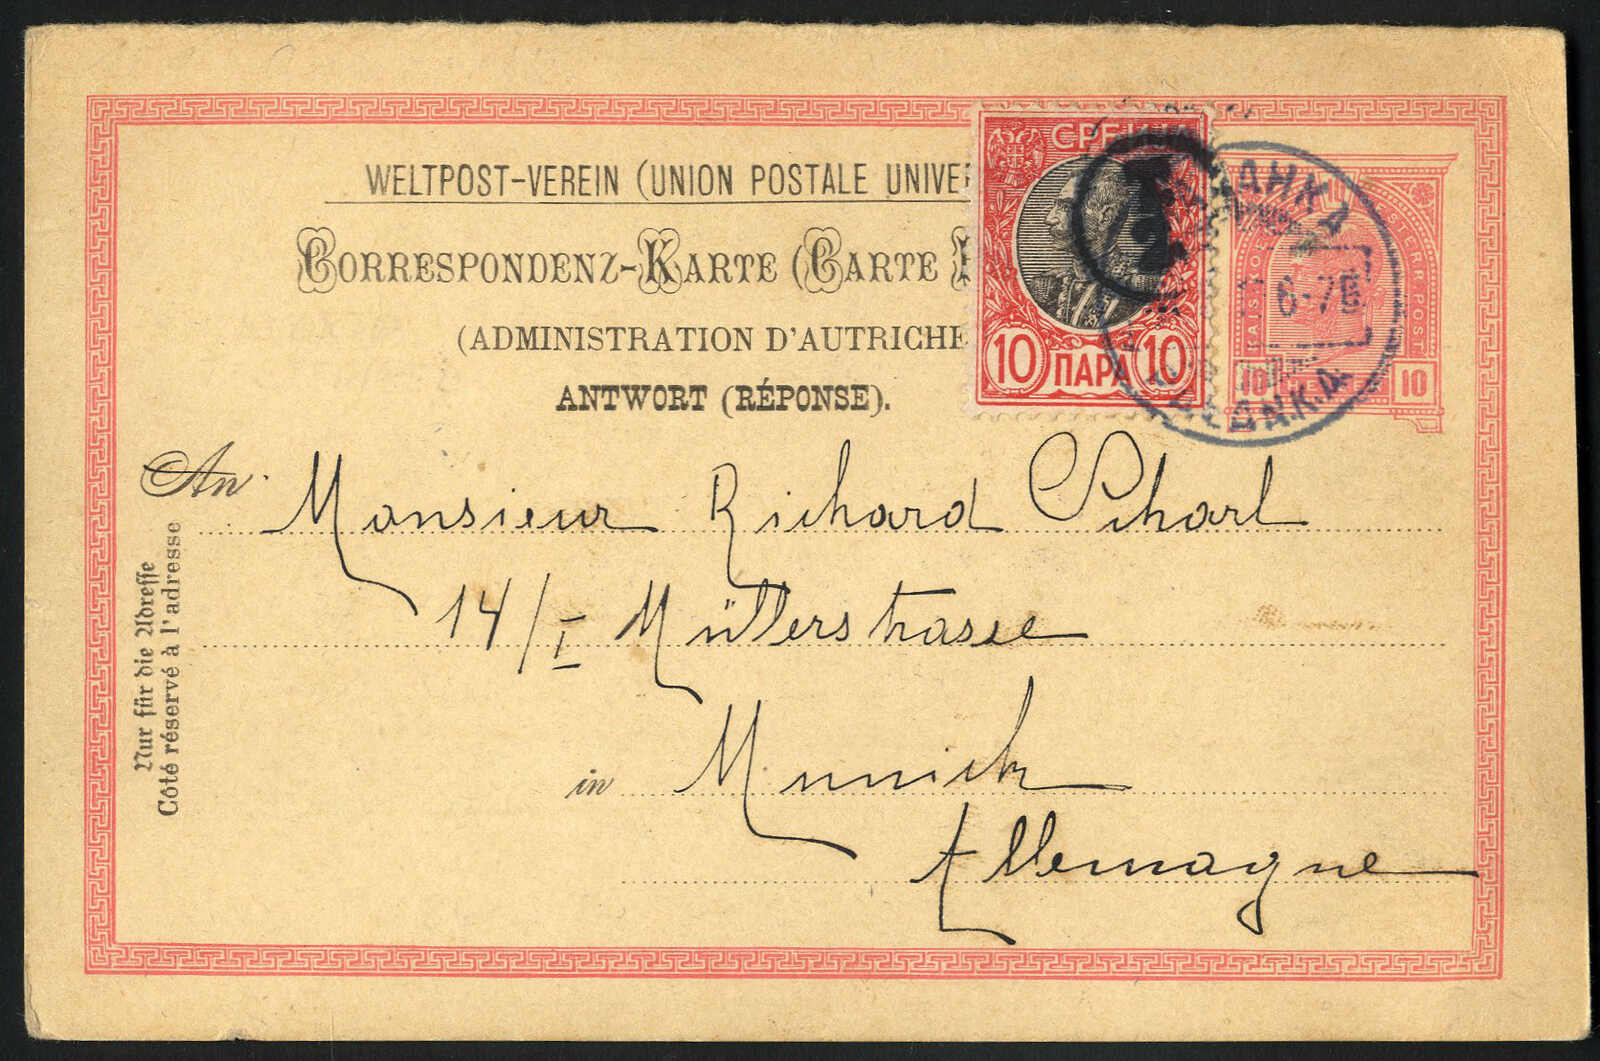 WELTPOST-VEREIN (UNION POSTALE UNIVE
CORRESPONDENZ-KARTE (CARTE
(ADMINISTRATION D'AUTRICHE
ANTWORT (RÉPONSE).
10 ПАРА 10
6-7
KAIS. KOE
STERR. POST
10 10
An Monsieur Richard Scharl
14/I Müllerstrasse
in Munich
Allemagne
Nur für die Adresse
Côté réservé à l'adresse